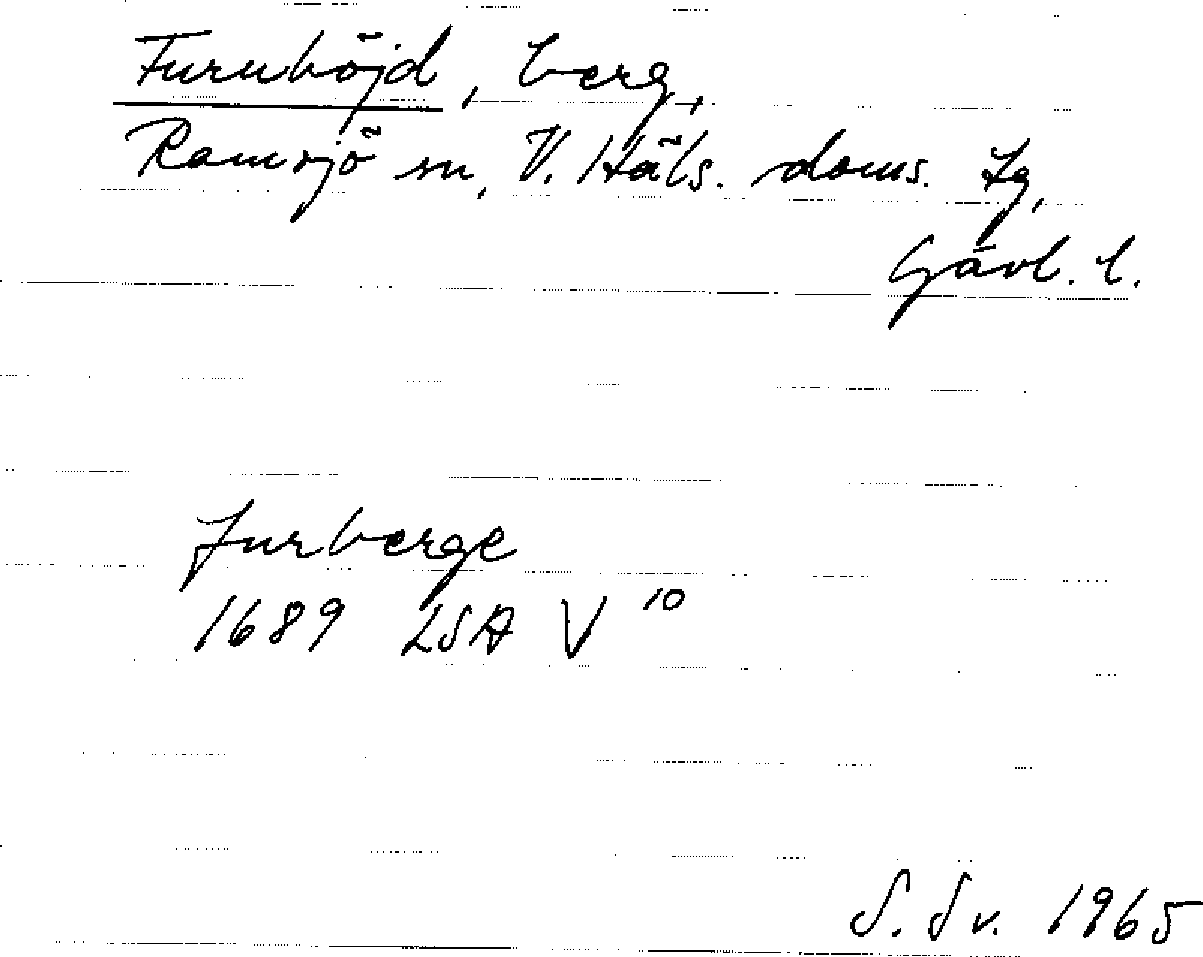 Furuhöjd, berg,
Ramsjö sn, V. Häls. doms. tg,
Gävl. l.
furberge
1689 LSA V 10
S. Sv. 1965